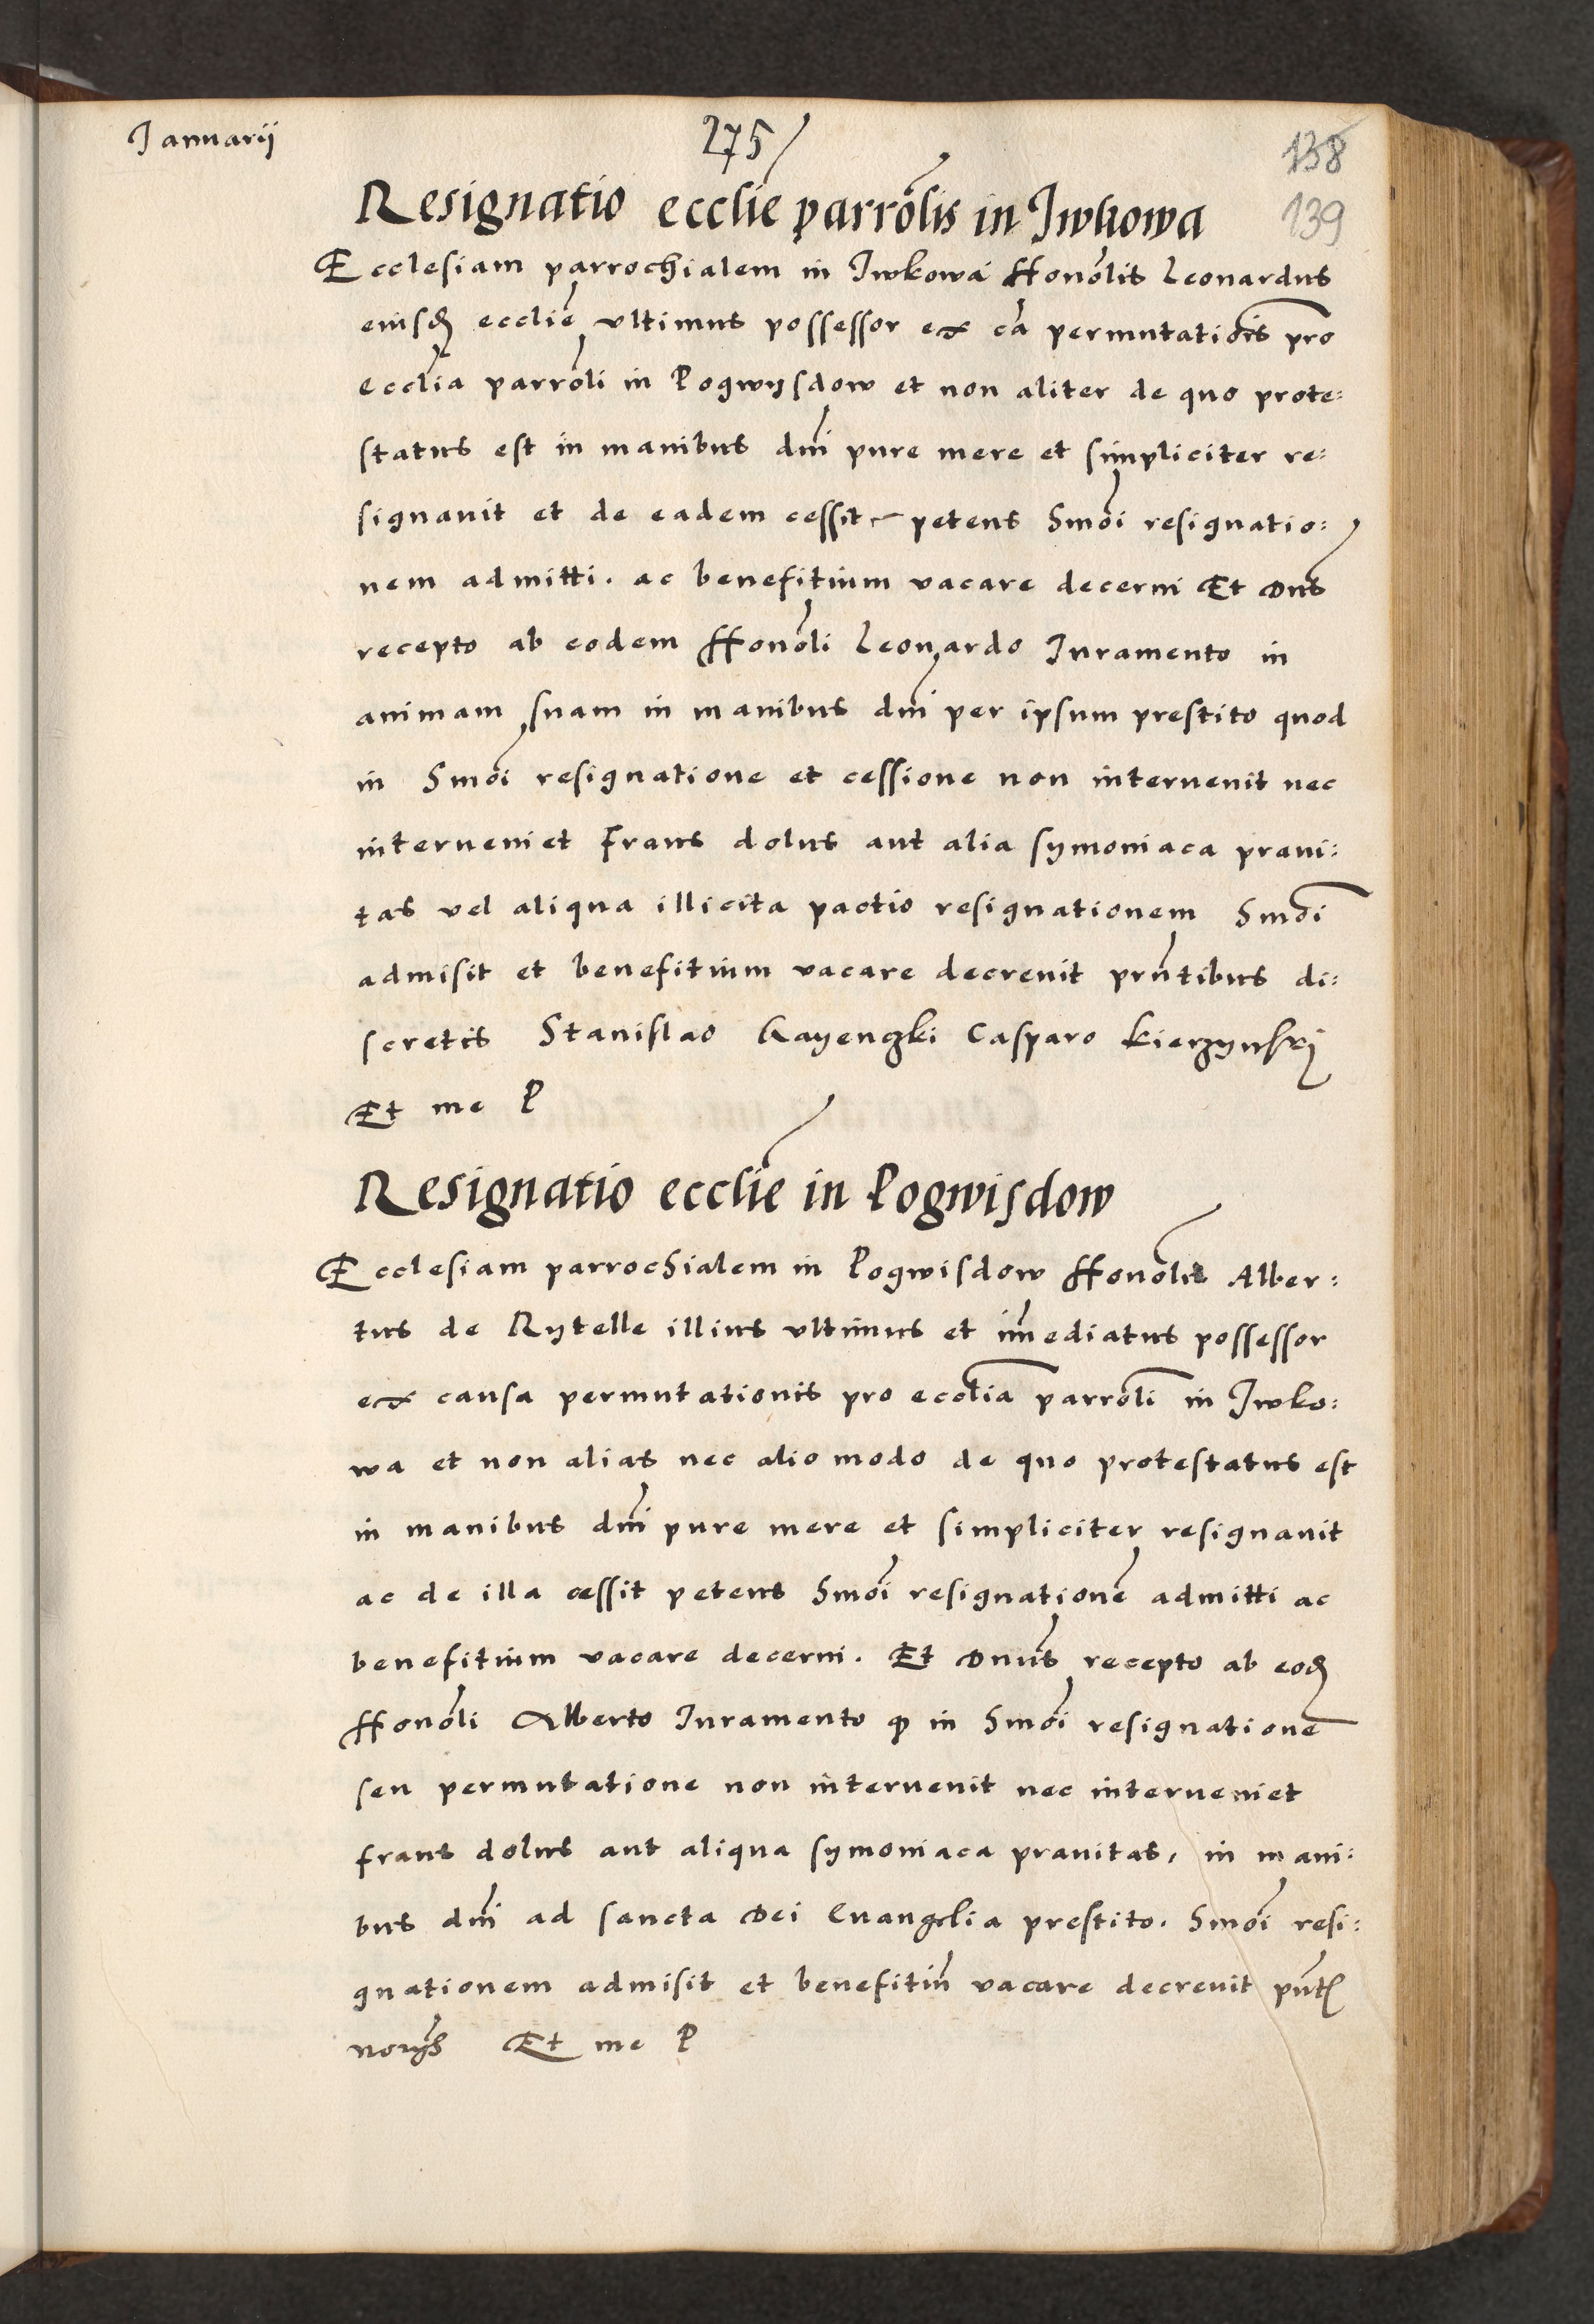 Januarij
275
138
139
Resignatio ecclie parrolis in Jwkowa
Ecclesiam parrochialem in Jwkowa Honolis Leonardus
eiusd ecclie ultimus possessor ex ca permutationis pro
ecclia parroli in Pogwysdow et non aliter de quo prote:
status est in manibus dni pure mere et simpliciter re:
signauit et de eadem cessit petens Smoi resignatio:
nem admitti. ac benefitium vacare decerni Et Dns
recepto ab eodem Honoli Leonardo Juramento in
animam suam in manibus dni per ipsum prestito quod
in Smoi resignatione et cessione non interuenit nec
interueniet Fraus dolus aut alia symoniaca praui:
tas vel aliqua illicita pactio resignationem Smoi
admisit et benefitium vacare decreuit prntibus di:
scretis Stanislao Kayenczki Casparo Kierzynski
Et me P
Resignatio ecclie in Pogwisdow
Ecclesiam parrochialem in Pogwisdow Honolis Alber:
tus de Rytelle illius ultimus et imediatus possessor
ex causa permutationis pro ecclia parroli in Jwko:
wa et non alias nec alio modo de quo protestatus est
in manibus dni pure mere et simpliciter resignauit
ac de illa cessit petens Smoi resignatione admitti ac
benefitium vacare decerni. Et Dnus recepto ab eod
Honoli Alberto Juramento q in Smoi resignatione
seu permutatione non interuenit nec interueniet
fraus dolus aut aliqua symoniaca prauitas, in mani:
bus dni ad sancta Dei Euangelia prestito. Smoi resi:
gnationem admisit et benefitiu vacare decreuit pnt
Et me P